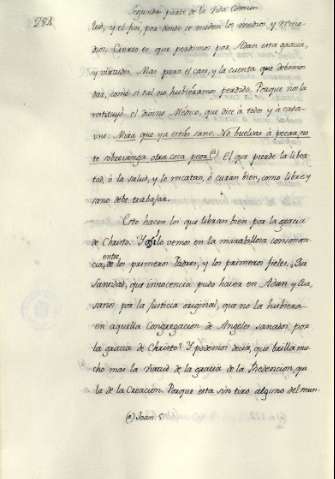 284
Segunda parte de la Vida Comun
lud, y el fin, por donde se miden los medios, y reme-
dios. Cierto es que perdimos por Adan esta gracia,
y virtud. Mas para el caso, y la cuenta que debemos
dar, como si tal no hubiéramos perdido. Porque no la
restituyó el divino Médico, que dice à todos y à cada
uno: Mira, que ya estás sano. No buelvas à pecar, no
te sobrevenga otra cosa peor. (a) El que pierde la liber-
tad, ò la salud, y lo rescatan, ò curan bien, como libre y
sano debe trabajar.
Esto hacen los que libran bien por la gracia
de Christo. Y así lo vemos en la maravillosa consonan-
cia, entre los primeros Padres, y los primeros fieles. ¿Qué
Sanidad, que innocencia pudo haver en Adan, y Eva,
sanos por la Justicia original, que no la hubiera
en aquella Congregacion de Angeles sanados por
la gracia de Christo? Y podemos decir, que brilla mu-
cho mas la virtud de la gracia de la Redencion, que
la de la Creacion. Porque esta sin tiro alguno del mun-
(a) Joan. 5.